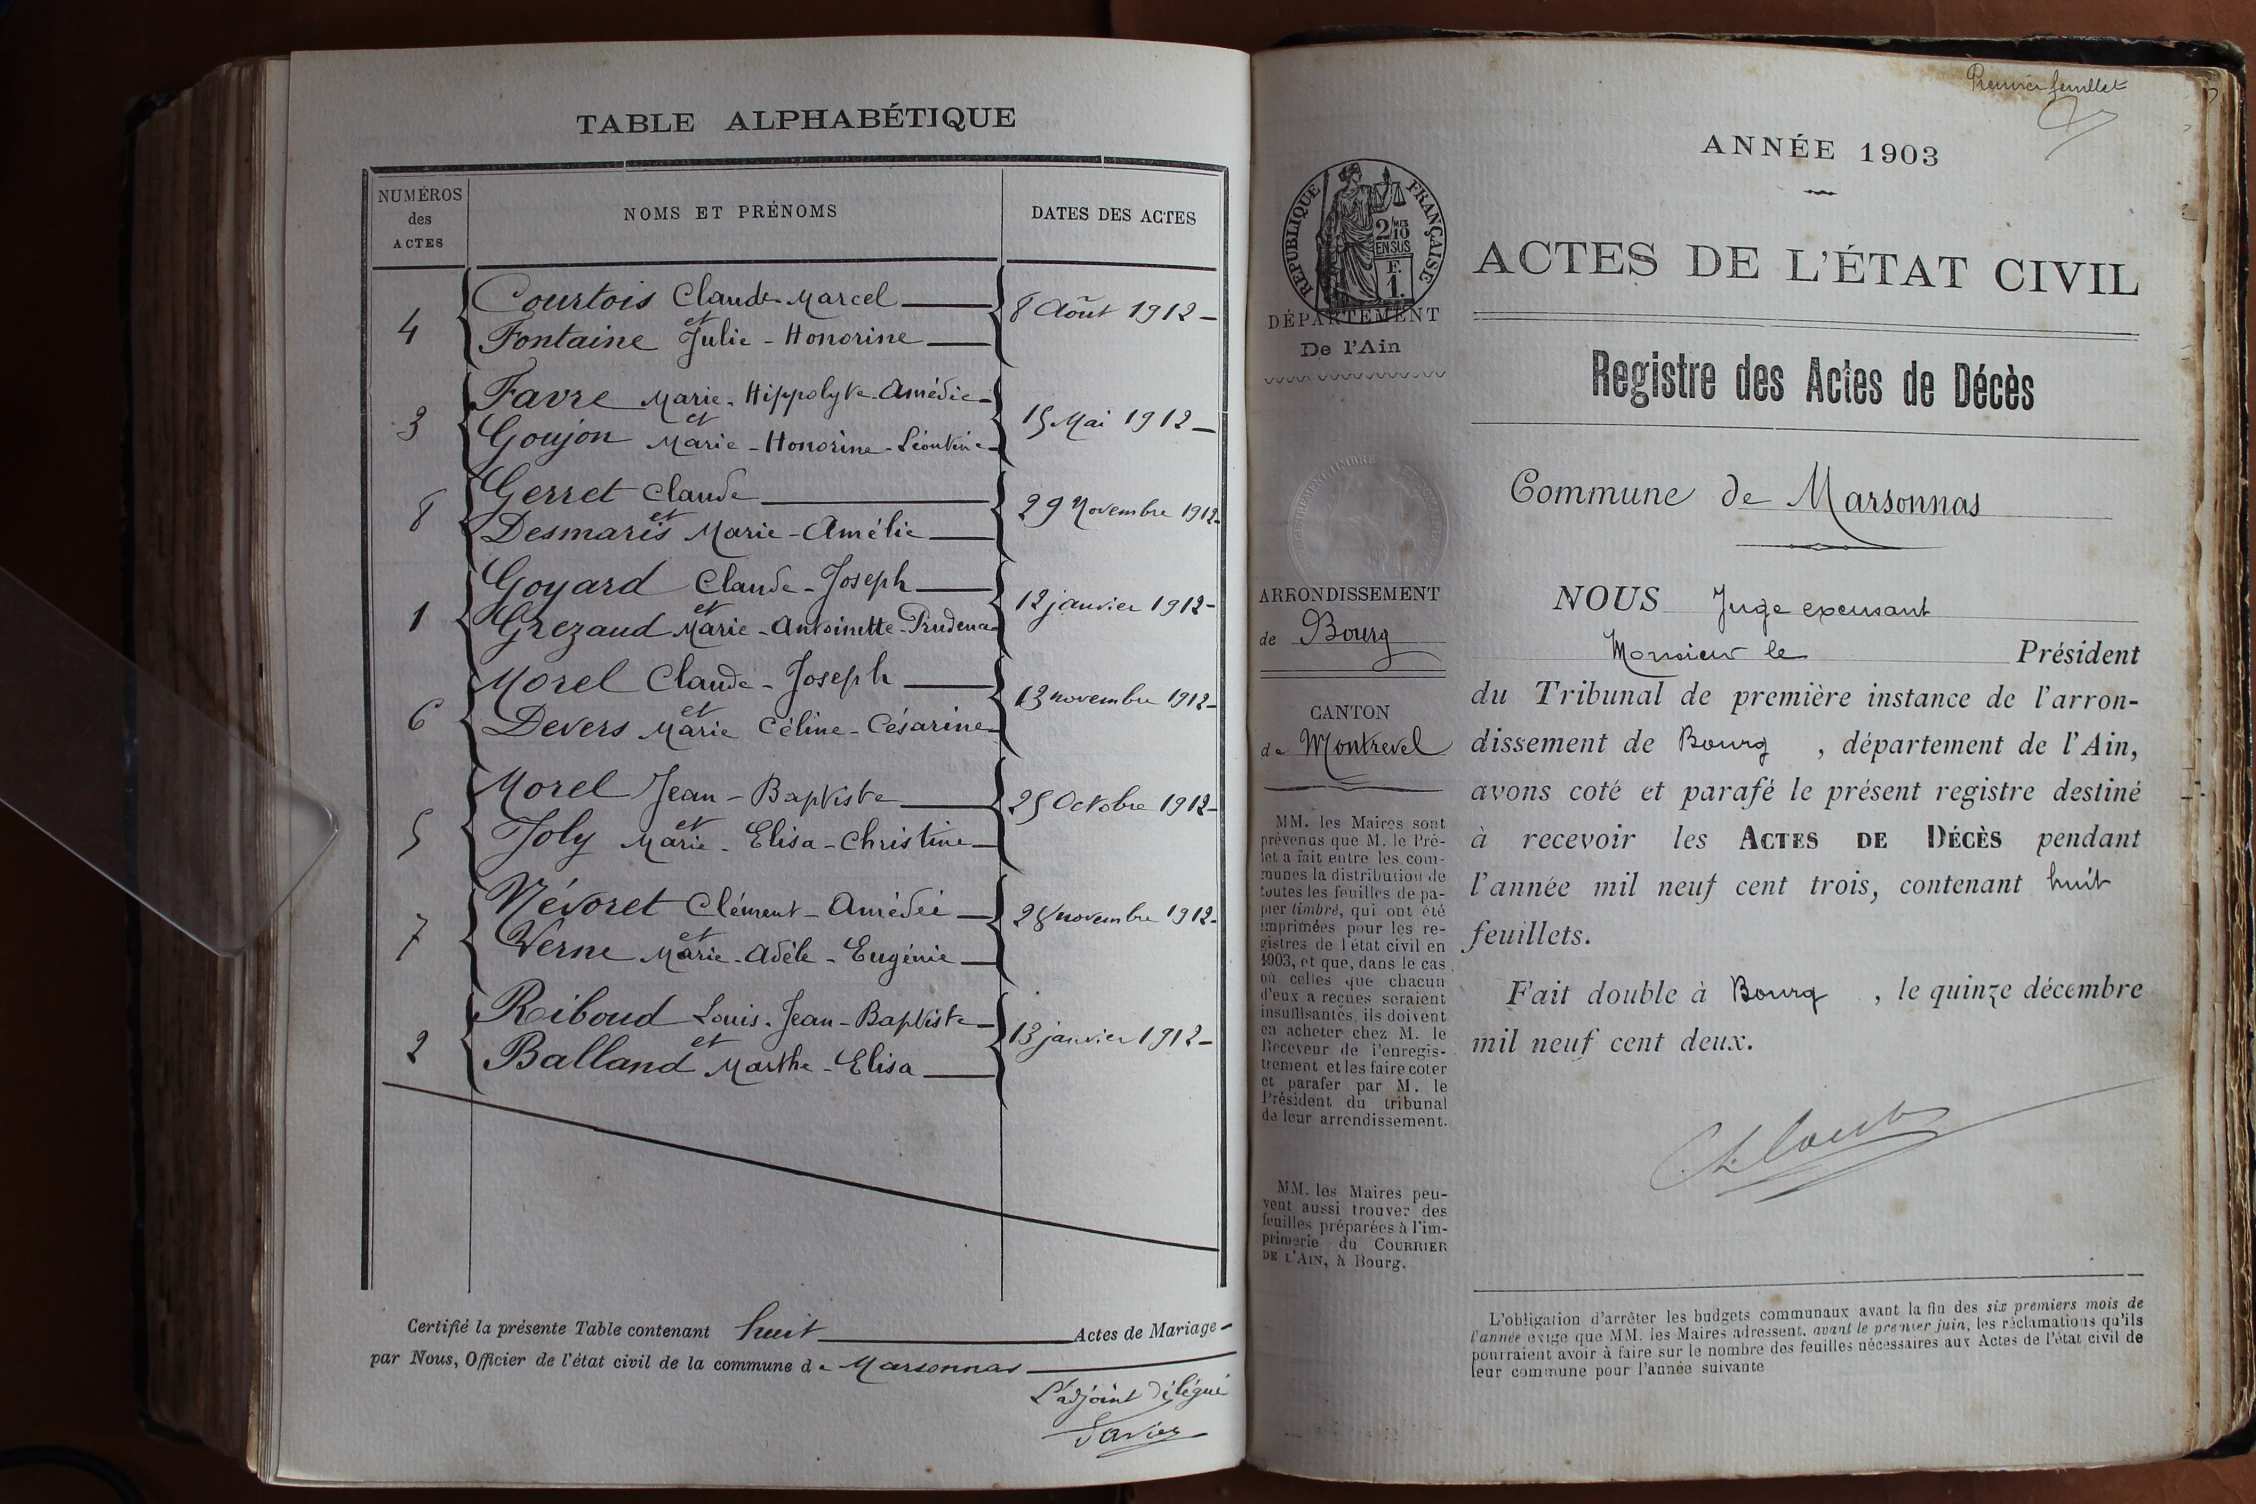 TABLE ALPHABÉTIQUE
NUMÉROS
des
ACTES
NOMS ET PRÉNOMS
DATES DES ACTES
4
Courtois Claude-Marcel
et
Fontaine Julie-Honorine
8 Août 1912
3
Favre Marie-Hippolyte-Amédée
et
Goujon Marie-Honorine-Léontine
15 Mai 1912
8
Gerret Claude
et
Desmaris Marie-Amélie
29 Novembre 1912
1
Goyard Claude-Joseph
et
Grezaud Marie-Antoinette-Prudence
12 janvier 1912
6
Morel Claude-Joseph
et
Devers Marie Céline-Césarine
13 novembre 1912
5
Morel Jean-Baptiste
et
Joly Marie-Elisa-Christine
25 Octobre 1912
7
Névoret Clément-Amédée
et
Verne Marie-Adèle-Eugénie
28 novembre 1912
2
Riboud Louis-Jean-Baptiste
et
Balland Marthe-Elisa
13 janvier 1912
Certifié la présente Table contenant huit Actes de Mariage
par Nous, Officier de l'état civil de la commune de Marsonnas
L'adjoint délégué
Premier feuillet
ANNÉE 1903
RÉPUBLIQUE FRANÇAISE
2/10 MES
EN SUS
F.
1.
DÉPARTEMENT
De l'Ain
ARRONDISSEMENT
de Bourg
CANTON
de Montrevel
MM. les Maires sont
prévenus que M. le Pré-
fet a fait entre les com-
munes la distribution de
toutes les feuilles de pa-
pier timbré, qui ont été
imprimées pour les re-
gistres de l'état civil en
1903, et que, dans le cas
où celles que chacun
d'eux a reçues seraient
insuffisantes, ils doivent
en acheter chez M. le
Receveur de l'enregis-
trement et les faire coter
et parafer par M. le
Président du tribunal
de leur arrondissement.
MM. les Maires peu-
vent aussi trouver des
feuilles préparées à l'im-
primerie du COURRIER
DE L'AIN, à Bourg.
ACTES DE L'ÉTAT CIVIL
Registre des Actes de Décès
Commune de Marsonnas
NOUS Juge excusant
Monsieur le Président
du Tribunal de première instance de l'arron-
dissement de Bourg , département de l'Ain,
avons coté et parafé le présent registre destiné
à recevoir les ACTES DE DÉCÈS pendant
l'année mil neuf cent trois, contenant huit
feuillets.
Fait double à Bourg , le quinze décembre
mil neuf cent deux.
L'obligation d'arrêter les budgets communaux avant la fin des six premiers mois de
l'année exige que MM. les Maires adressent, avant le premier juin, les réclamations qu'ils
pourraient avoir à faire sur le nombre des feuilles nécessaires aux Actes de l'état civil de
leur commune pour l'année suivante